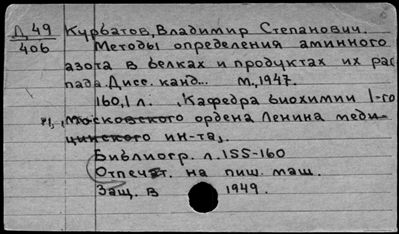 Д 49
406
Курбатов, Владимир Степанович.
Методы определения аминного
азота в белках и продуктах их рас
пада. Дисс. канд... М., 1947.
160,1 л. (Кафедра биохимии 1-го
Московского ордена Ленина меди-
цинского ин-та).
Библиогр. л. 155-160
Отпечат. на пиш. маш.
Защ. в 1949.